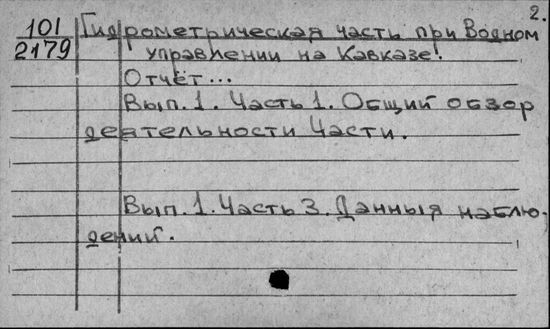 2.
101
2179
Гидрометрическая часть при Водном
управлении на Кавказе.
Отчёт...
Вып. 1. Часть 1. Общий обзор
деятельности Части.
Вып. 1. Часть 3. Данныя наблю-
дений.